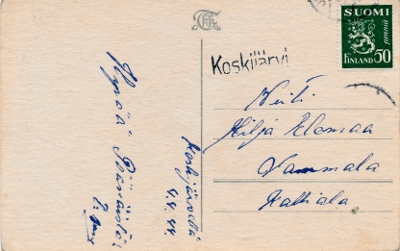 SUOMI
FINLAND 50
Koskijärvi
Hyvää Pääsiäistä!
Koskijärvellä
4.4.44.
Neiti
Hilja Elomaa
Vammala